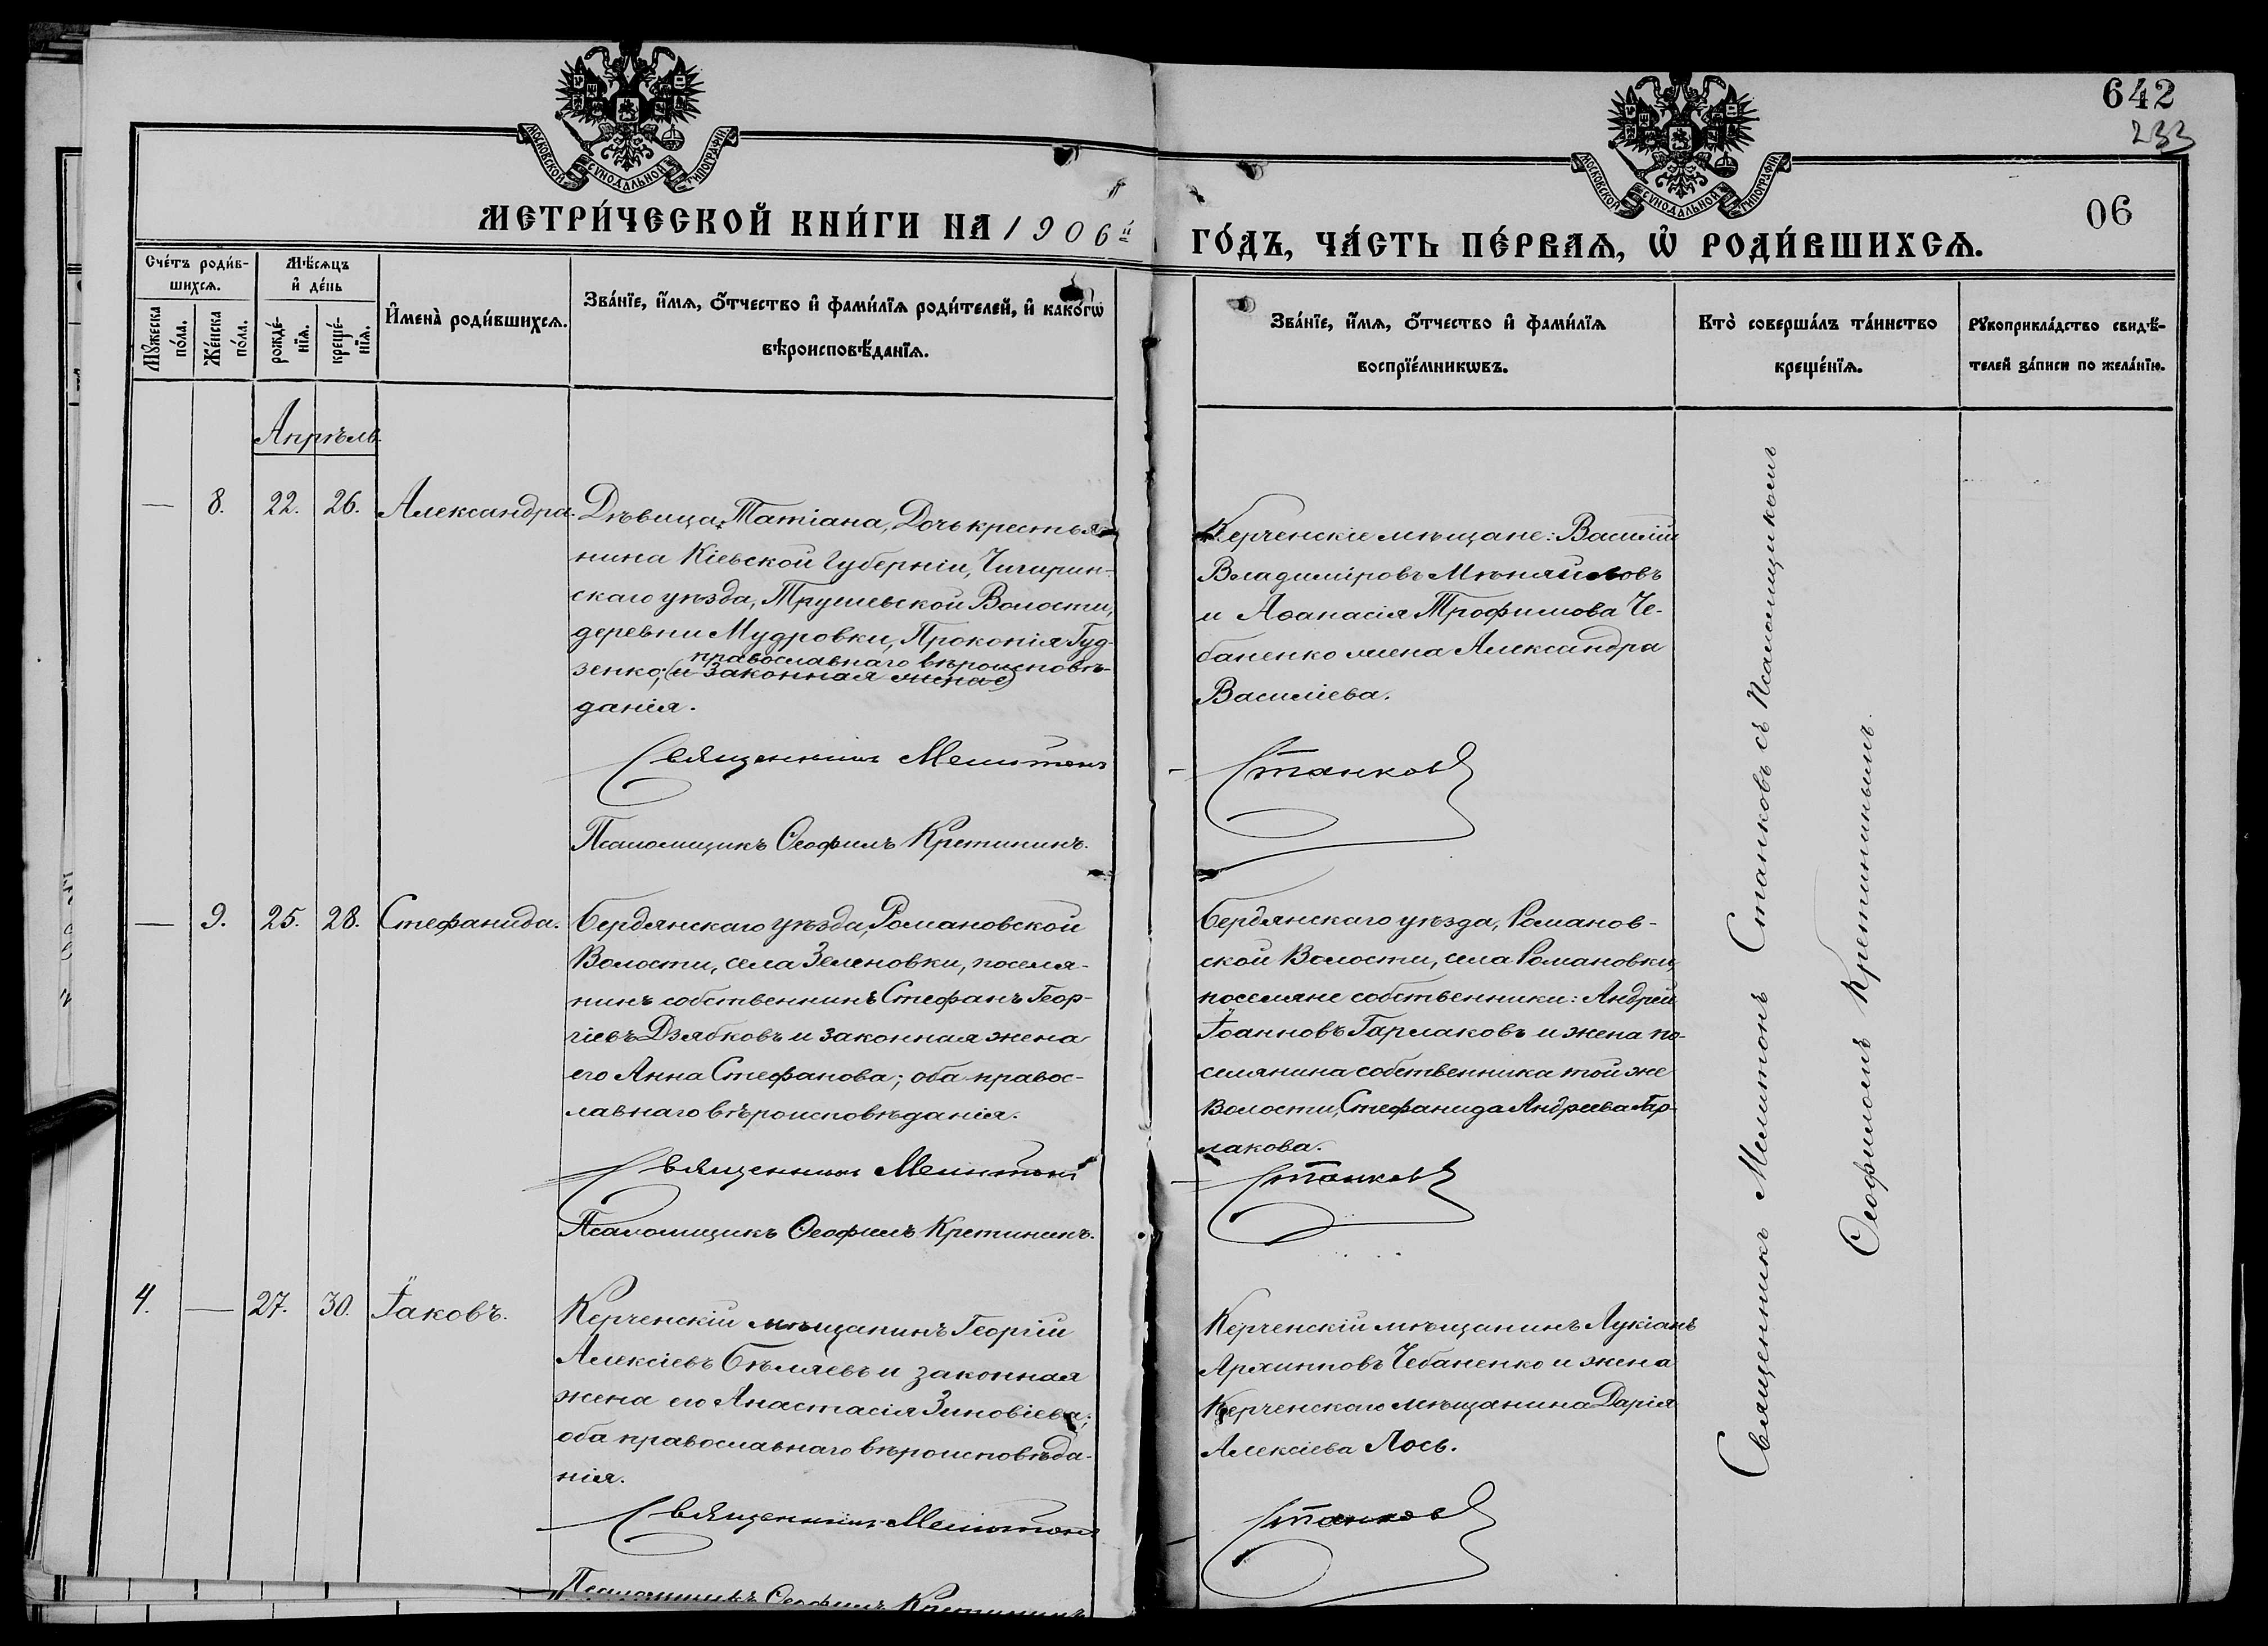 642
233
06
МОСКОВСКОЙ СѴНОДАЛЬНОЙ ТИПОГРАФІИ
МОСКОВСКОЙ СѴНОДАЛЬНОЙ ТИПОГРАФІИ
МЕТРИ́ЧЕСКОЙ КНИ́ГИ НА 1906й
ГО́ДЪ, ЧА́СТЬ ПЕ́РВАѦ, Ѡ҆ РОДИ́ВШИХСѦ.
Сче́тъ роди́в-
шихсѧ.
Мѣ́сѧцъ
и҆ де́нь
Мꙋ́жеска
по́ла.
Же́нска
по́ла.
рожде́-
нїѧ.
креще́-
нїѧ.
И҆мена̀ роди́вшихсѧ.
Зва́нїе, и҆́мѧ, ѻ҆́тчество и҆ фами́лїѧ роди́телей, и҆ како́гѡ
вѣроисповѣ́данїѧ.
Зва́нїе, и҆́мѧ, ѻ҆́тчество и҆ фами́лїѧ
воспрїе́мникѡвъ.
Кто̀ соверша́лъ та́инство
креще́нїѧ.
Рꙋкоприкла́дство свидѣ́-
телей за́писи по жела́нїю.
Апрѣль
— 8. 22. 26. Александра.
Дѣвица, Татіана, Дочь крестья-
нина Кіевской Губерніи, Чигирин-
скаго уѣзда, Трушевской Волости,
деревни Мудровки, Прокопія Гуд-
зенко; (и законная жена е) православнаго вѣроисповѣ-
данія.
Священникъ Мелитонъ
Псаломщикъ Ѳеофилъ Кретининъ.
Керченскіе мѣщане: Василій
Владиміровъ Мѣняйловъ
и Аѳанасія Трофимова Че-
баненко жена Александра
Василіева.
Станковъ
— 9. 25. 28. Стефанида.
Бердянскаго уѣзда, Романовской
Волости, села Зеленовки, поселя-
нинъ собственникъ Стефанъ Геор-
гіевъ Дзябковъ и законная жена
его Анна Стефанова; оба правос-
лавнаго вѣроисповѣданія.
Священникъ Мелитонъ
Псаломщикъ Ѳеофилъ Кретининъ.
Бердянскаго уѣзда, Романов-
ской Волости, села Романовки,
поселяне собственники: Андрей
Іоанновъ Гарлаковъ и жена по-
селянина собственника той же
Волости, Стефанида Андреева Гар-
лакова.
Станковъ
4. — 27. 30. Іаковъ.
Керченскій мѣщанинъ Георгій
Алексіевъ Бѣляевъ и законная
жена его Анастасія Зиновіева;
оба православнаго вѣроисповѣда-
нія.
Священникъ Мелитонъ
Псаломщикъ Ѳеофилъ Кретининъ
Керченскій мѣщанинъ Лукіанъ
Архипповъ Чебаненко и жена
Керченскаго мѣщанина Дарія
Алексіева Лось.
Станковъ
Священникъ Мелитонъ Станковъ съ Псаломщикомъ
Ѳеофиломъ Кретининымъ.